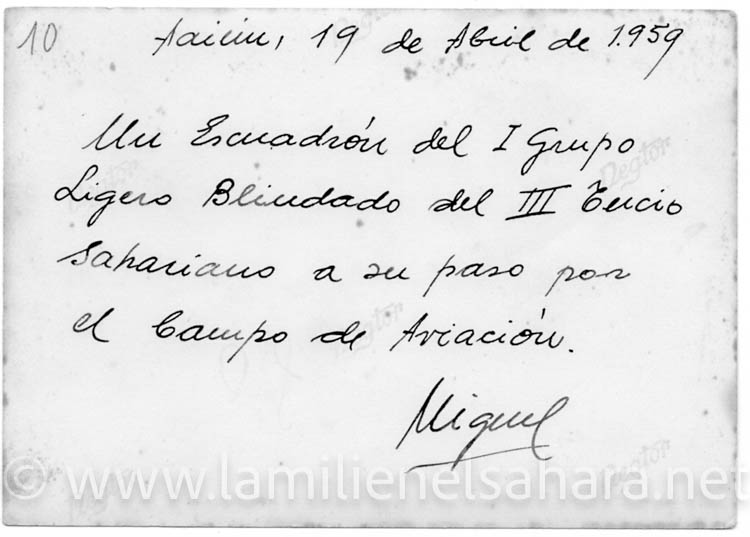 10
Aaiún, 19 de Abril de 1.959
Un Escuadrón del I Grupo
Ligero Blindado del III Tercio
Sahariano a su paso por
el Campo de Aviación.
Miguel
© www.lamilienelsahara.net
Degtor
Degtor
Degtor